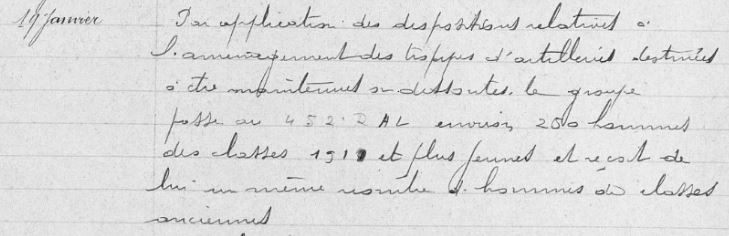 19 Janvier
Par application des dispositions relatives à
l'aménagement des troupes d'artilleries destinées
à être maintenues ou dissoutes. le groupe
passe au 452. R A L environ 250 hommes
des classes 191 et plus jeunes et reçoit de
lui un même nombre d'hommes de classes
anciennes